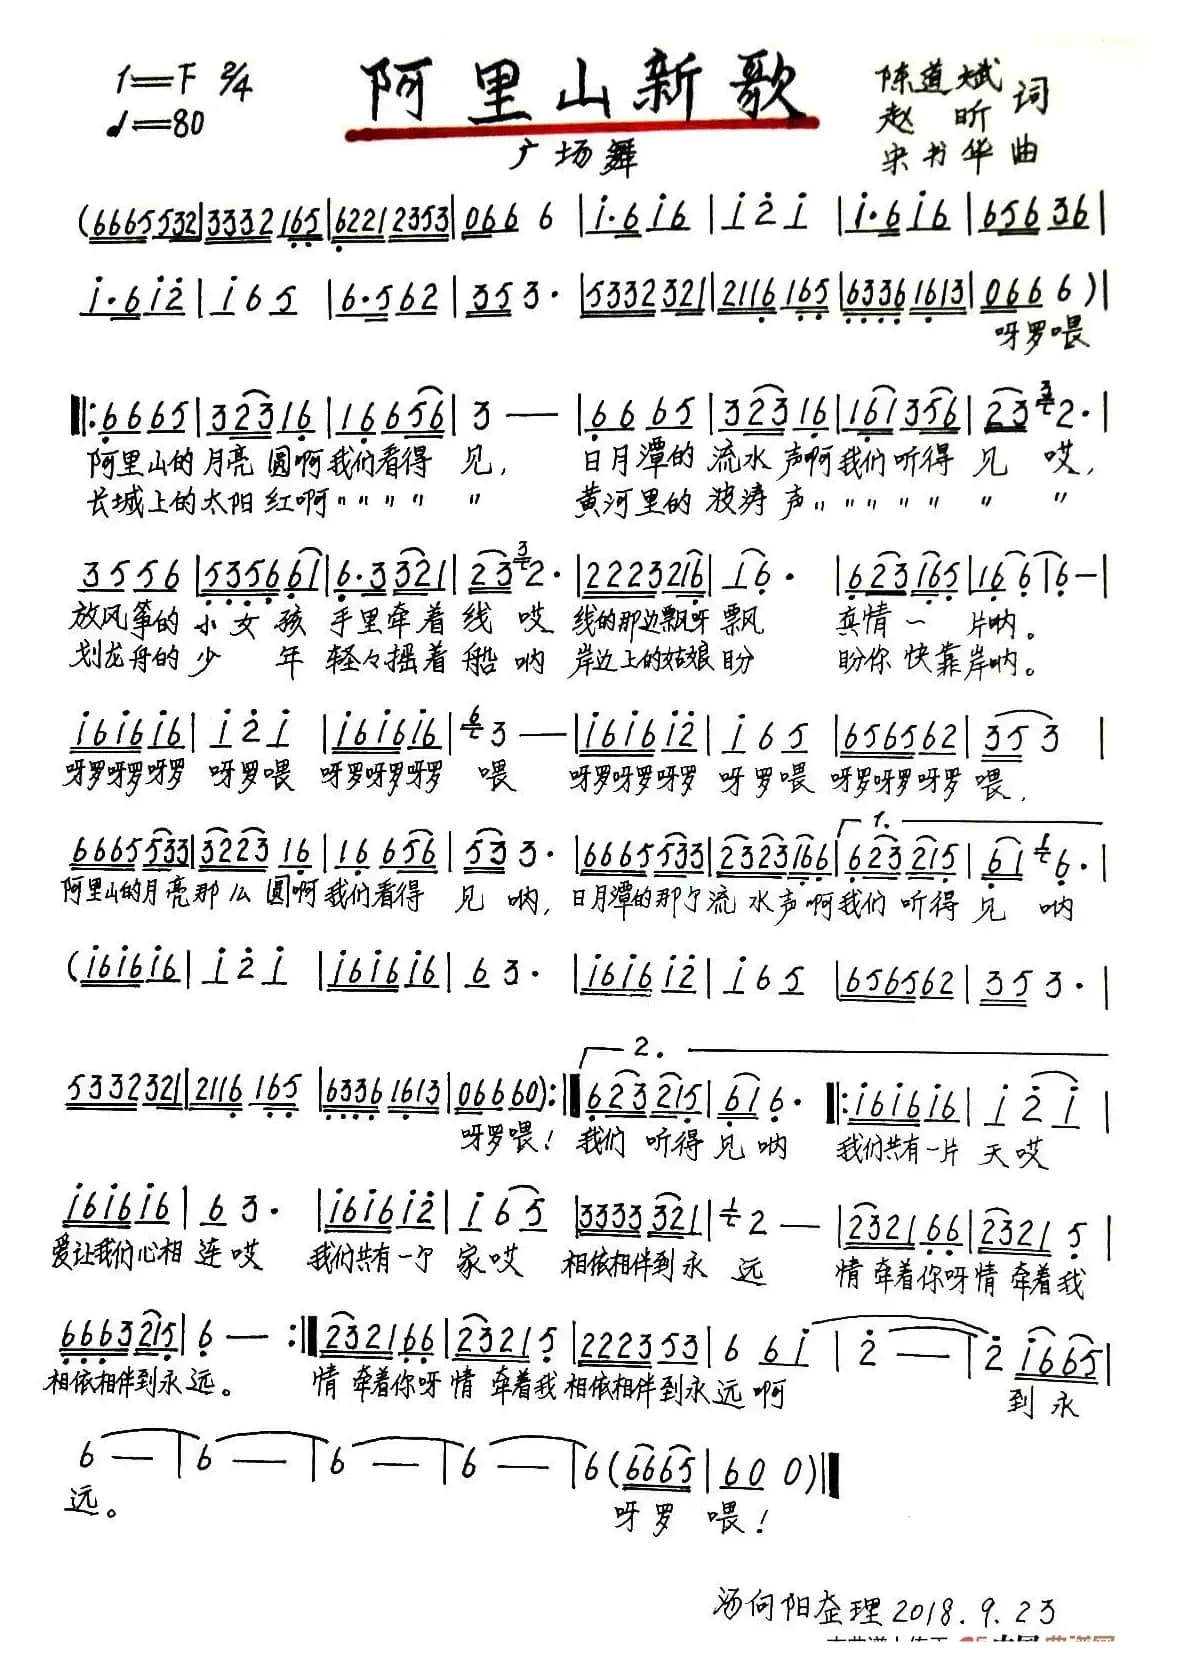 1=F 2/4 阿里山新歌 陈道斌 赵昕 词
♩=80 广场舞 宋书华 曲
(6665532|3332165|62212353|0666|1·616|121|1·616|65636|
1·612|165|6·562|353·|5332321|2116165|63361613|0666)|
呀罗喂
‖:6665|32316|16656|3—|6665|32316|161356|2332·|
阿里山的月亮圆啊我们看得见, 日月潭的流水声啊我们听得见哎,
长城上的太阳红啊〃〃〃〃〃 黄河里的波涛声〃〃〃〃〃〃〃
3556|535661|6·3321|2332·|2223216|16·|623165|1661|6—|
放风筝的小女孩手里牵着线哎线的那边飘呀飘真情一片呐。
划龙舟的少年轻々摇着船呐岸边上的姑娘盼盼你快靠岸呐。
161616|121|161616|63—|161612|165|656562|353|
呀罗呀罗呀罗呀罗喂呀罗呀罗呀罗喂呀罗呀罗呀罗呀罗喂呀罗呀罗呀罗喂,
1.
6665533|322316|16656|533·|6665533|2323166|623215|6116·|
阿里山的月亮那么圆啊我们看得见呐,日月潭的那个流水声啊我们听得见呐
(161616|121|161616|63·|161612|165|656562|353·|
2.
5332321|2116165|63361613|066660):‖623215|616·‖:161616|121|
呀罗喂!我们听得见呐我们共有一片天哎
161616|63·|161612|165|3333321|12—|232166|23215|
爱让我们心相连哎我们共有一个家哎相依相伴到永远情牵着你呀情牵着我
6663215|6—:‖232166|23215|222353|661|2—|21665|
相依相伴到永远。情牵着你呀情牵着我相依相伴到永远啊到永
6—|6—|6—|6—|6(6665|600)‖
远。呀罗喂!
汤向阳整理2018.9.23